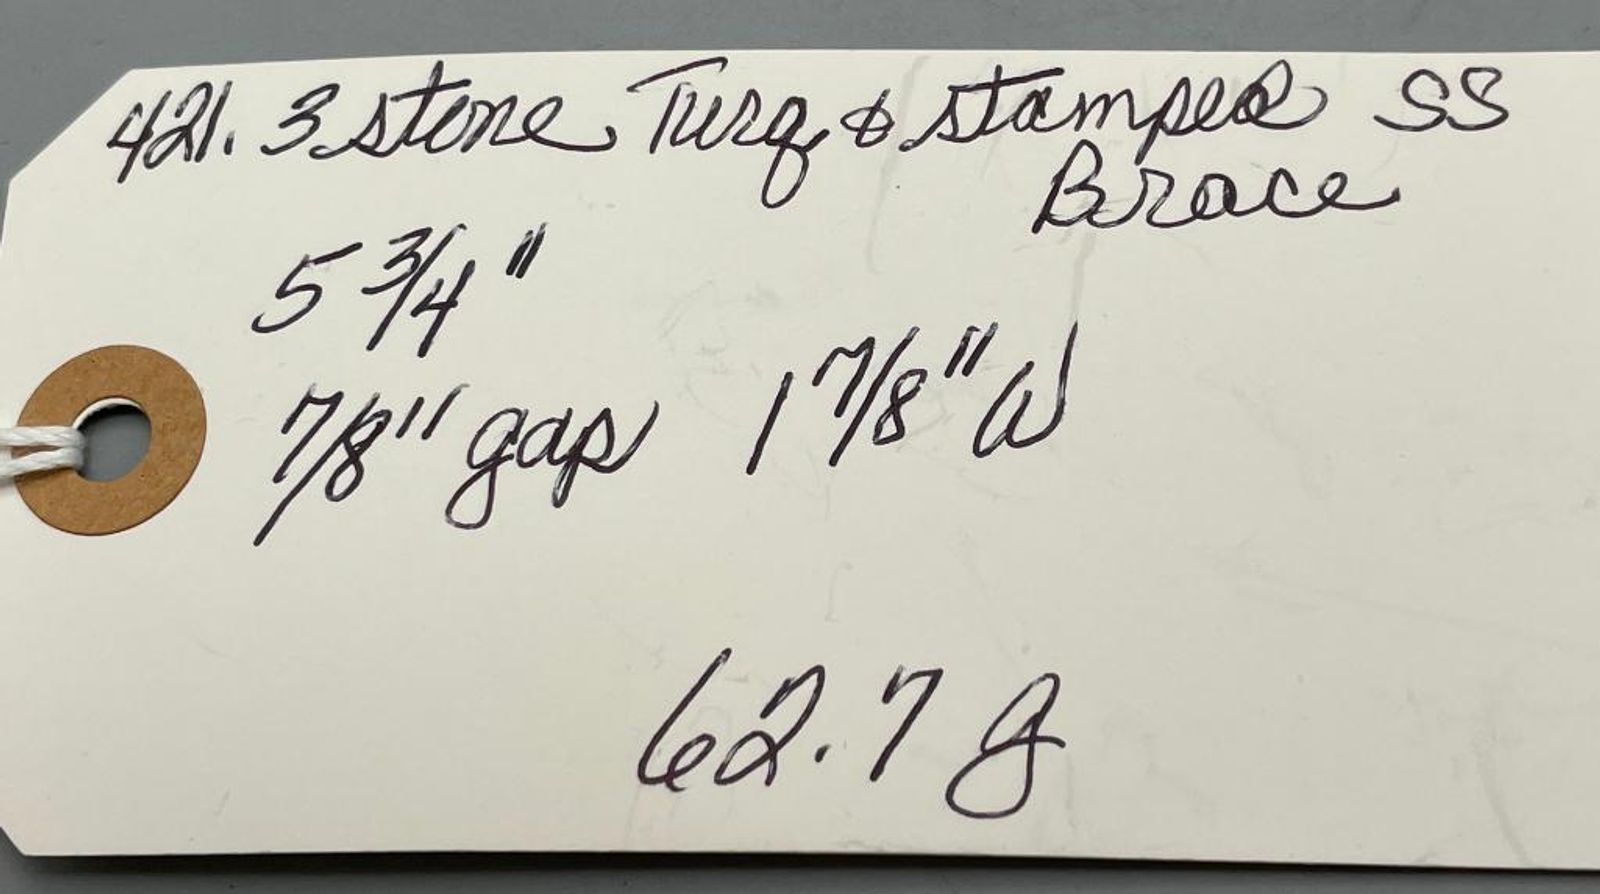 421. 3 stone Turq & stamped SS
Brace
5 3/4"
7/8" gap 1 7/8" W
62.7 g